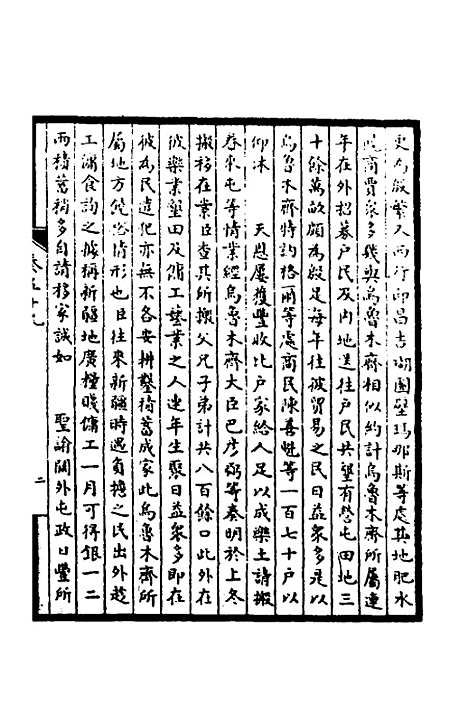 更為殷繁又西行即昌吉瑚圖壁瑪那斯等處其地肥水
饒商賈衆多幾與烏魯木齊相似約計烏魯木齊所屬連
年在外招募户民及内地送往户民共墾有營屯田地三
十餘萬畝頗為殷足每年往彼貿易之民日益衆多是以
烏魯木齊特訥格爾等處商民陳喜魁等一百七十户以
仰沐　天恩屢獲豐收比户家給人足以成樂土請搬
眷來屯等情業經烏魯木齊大臣巴彦弼等奏明於上冬
搬移在業臣查其所搬父兄子弟計共八百餘口此外在
彼樂業墾田及傭工藝業之人連年生聚日益衆多即在
彼為民遣犯亦無不各安耕鑿積蓄成家此烏魯木齊所
屬地方饒裕情形也臣往來新疆時遇負擔之民出外趁
工謀食詢之據稱新疆地廣糧賤傭工一月可得銀一二
兩積蓄稍多自請移家誠如　聖諭關外屯政日豐所
卷五十九
二